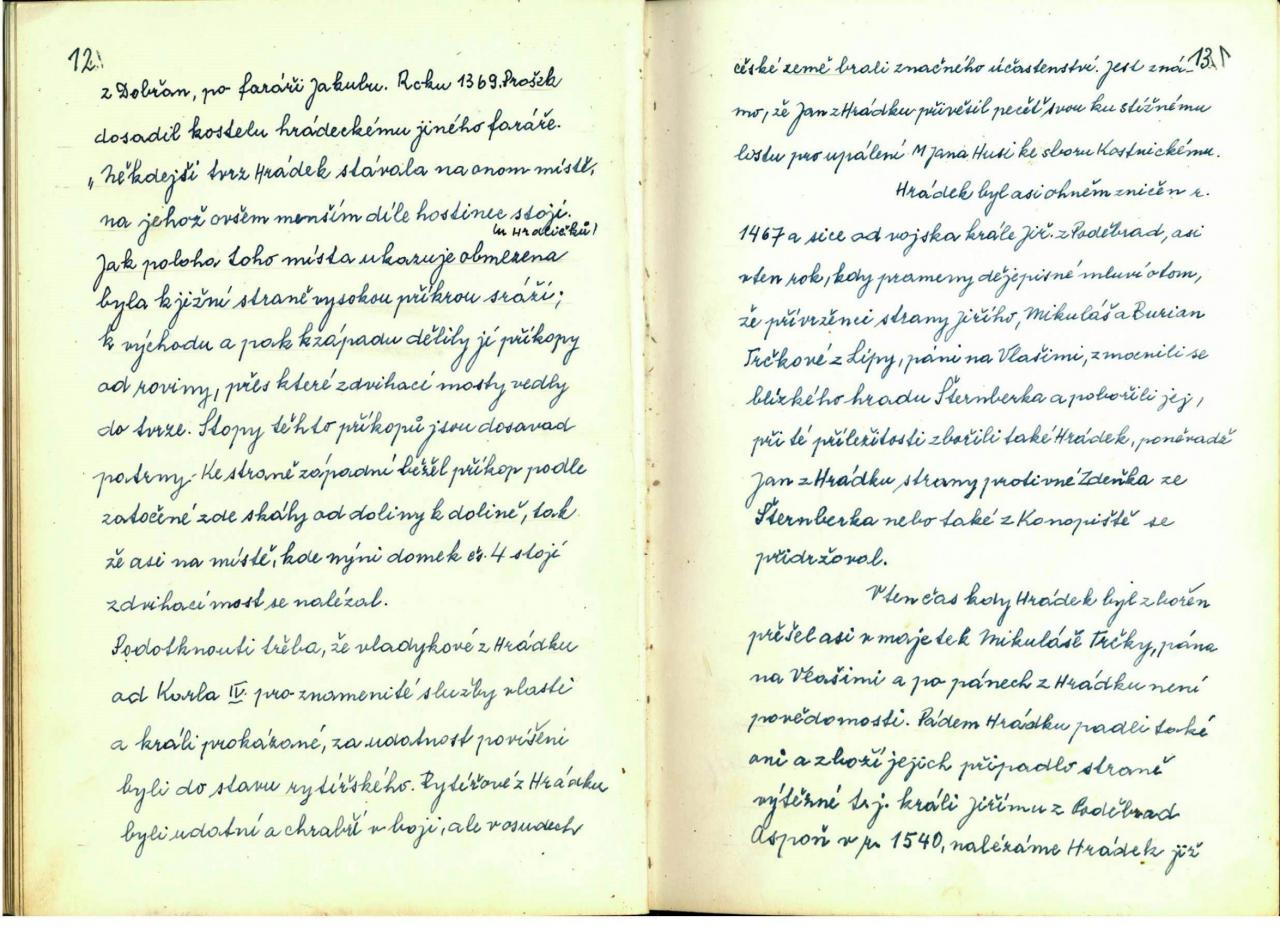 12.
z Dobřan, po faráři Jakubu. Roku 1369. Prošek
dosadil kostelu hrádeckému jiného faráře.
„Někdejší tvrz Hrádek stávala na onom místě,
na jehož ovšem menším díle hostinec stojí.
(u Hraličků)
Jak poloha toho místa ukazuje obmezena
byla k jižní straně vysokou příkrou sráží;
k východu a pak k západu dělily jí příkopy
od roviny, přes které zdvihací mosty vedly
do tvrze. Stopy těhto příkopů jsou dosavad
patrny. Ke straně západní běžel příkop podle
zatočéné zde skály od doliny k dolině, tak
že asi na místě, kde nýni domek čs. 4 stojí
zdvihací most se nalézal.
Podotknouti třeba, že vladykové z Hrádku
od Karla IV. pro znamenité služby vlasti
a králi prokázané, za udatnost povišeni
byli do stavu rytířského. Rytířové z Hrádku
byli udatní a chrabří v boji, ale v osudech
13.
české země brali značného účastenství. Jest zná-
mo, že Jan z Hrádku přivěsil pečěť svou ku stížnému
listu pro upálení M Jana Husi ke sboru Kostnickému.
Hrádek byl asi ohněm zničěn r.
1467 a sice od vojska krále Jiř. z Poděbrad, asi
v ten rok, kdy prameny dějepisné mluví o tom,
že přívrženci strany Jiřího, Mikuláš a Burian
Trčkové z Lípy, páni na Vlašimi, zmocnili se
blízkého hradu Šternberka a pobořili jej,
při té příležitosti zbořili také Hrádek, poněvadž
Jan z Hrádku strany protivné Zdeňka ze
Šternberka nebo také z Konopiště se
přidržoval.
V ten čas kdy Hrádek byl zbořen
přešel asi v majetek Mikuláše Trčky, pána
na Vlašimi a po pánech z Hrádku není
povědomosti. Pádem Hrádku padli také
oni a zboží jejich připadlo straně
výtěžné t.j. králi Jiřímu z Poděbrad
Aspoň v r. 1540, nalézáme Hrádek již